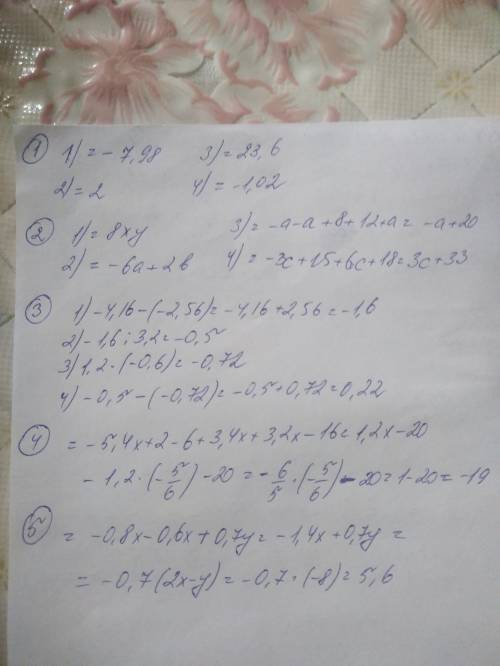 ① 1) = -7,98 3) = 23,6
2) = 2 4) = -1,02
② 1) = 8xy 3) = -a-a+8+12+a = -a+20
2) = -6a+2b 4) = -3c+15+6c+18=3c+33
③ 1) -4,16-(-2,56)=-4,16+2,56=-1,6
2) -1,6:3,2=-0,5
3) 1,2·(-0,6)=-0,72
4) -0,5-(-0,72)=-0,5+0,72=0,22
④ = -5,4x+2-6+3,4x+3,2x-16=1,2x-20
-1,2·(-5/6)-20=-6/5·(-5/6)-20=1-20=-19
⑤ = -0,8x-0,6x+0,7y=-1,4x+0,7y=
= -0,7(2x-y)=-0,7·(-8)=5,6